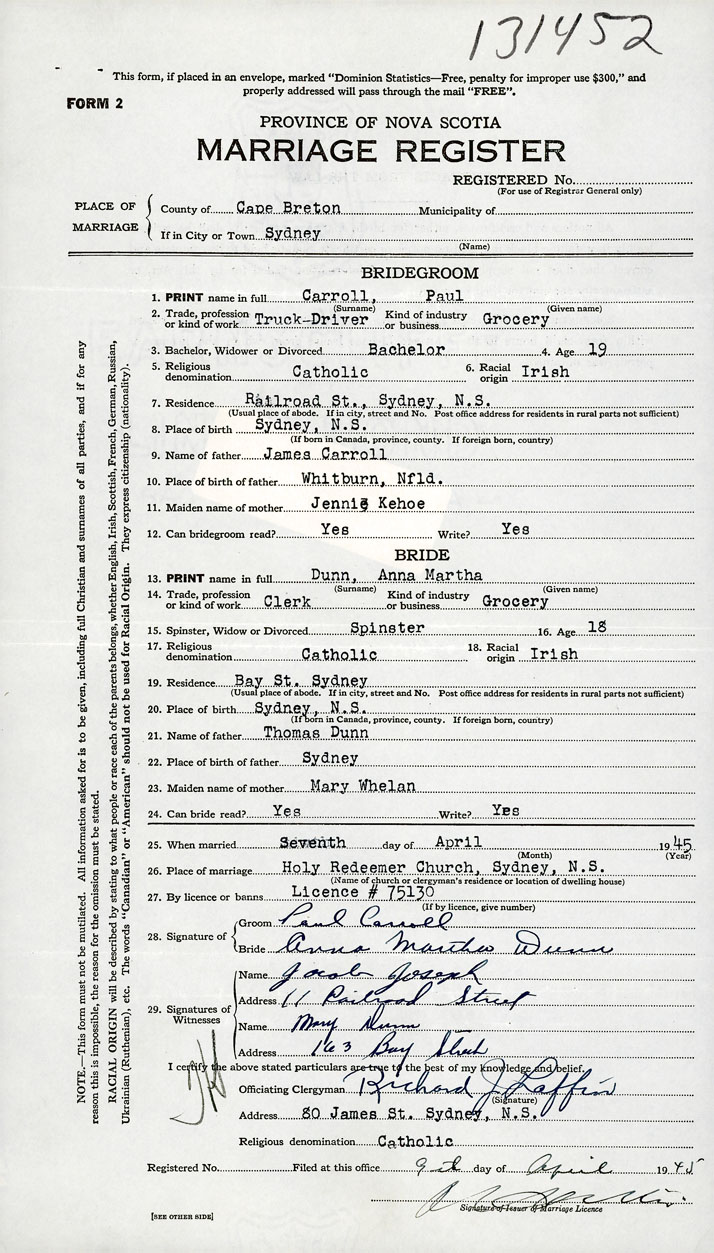 131452
This form, if placed in an envelope, marked "Dominion Statistics—Free, penalty for improper use $300," and
properly addressed will pass through the mail "FREE".
FORM 2
PROVINCE OF NOVA SCOTIA
MARRIAGE REGISTER
REGISTERED No.
(For use of Registrar General only)
PLACE OF MARRIAGE
County of Cape Breton Municipality of
If in City or Town Sydney
(Name)
BRIDEGROOM
1. PRINT name in full Carroll, Paul
(Surname) (Given name)
2. Trade, profession or kind of work Truck-Driver Kind of industry or business Grocery
3. Bachelor, Widower or Divorced Bachelor 4. Age 19
5. Religious denomination Catholic 6. Racial origin Irish
7. Residence Railroad St., Sydney, N.S.
(Usual place of abode. If in city, street and No. Post office address for residents in rural parts not sufficient)
8. Place of birth Sydney, N.S.
(If born in Canada, province, county. If foreign born, country)
9. Name of father James Carroll
10. Place of birth of father Whitburn, Nfld.
11. Maiden name of mother Jennie Kehoe
12. Can bridegroom read? Yes Write? Yes
BRIDE
13. PRINT name in full Dunn, Anna Martha
(Surname) (Given name)
14. Trade, profession or kind of work Clerk Kind of industry or business Grocery
15. Spinster, Widow or Divorced Spinster 16. Age 18
17. Religious denomination Catholic 18. Racial origin Irish
19. Residence Bay St. Sydney
(Usual place of abode. If in city, street and No. Post office address for residents in rural parts not sufficient)
20. Place of birth Sydney, N.S.
(If born in Canada, province, county. If foreign born, country)
21. Name of father Thomas Dunn
22. Place of birth of father Sydney
23. Maiden name of mother Mary Whelan
24. Can bride read? Yes Write? Yes
25. When married Seventh day of April 1945
(Month) (Year)
26. Place of marriage Holy Redeemer Church, Sydney, N.S.
(Name of church or clergyman's residence or location of dwelling house)
27. By licence or banns Licence # 75130
(If by licence, give number)
28. Signature of
Groom Paul Carroll
Bride Anna Martha Dunn
29. Signatures of Witnesses
Name Jacob Joseph
Address 11 Railroad Street
Name Mary Dunn
Address 163 Bay Street
I certify the above stated particulars are true to the best of my knowledge and belief.
Officiating Clergyman Richard J. Laffin
(Signature)
Address 80 James St. Sydney, N.S.
Religious denomination Catholic
Registered No. Filed at this office 9th day of April 1945
Signature of Issuer of Marriage Licence
[SEE OTHER SIDE]
NOTE.—This form must not be mutilated. All information asked for is to be given, including full Christian and surnames of all parties, and if for any
reason this is impossible, the reason for the omission must be stated.
RACIAL ORIGIN will be described by stating to what people or race each of the parents belongs, whether English, Irish, Scottish, French, German, Russian,
Ukrainian (Ruthenian), etc. The words "Canadian" or "American" should not be used for Racial Origin. They express citizenship (nationality).